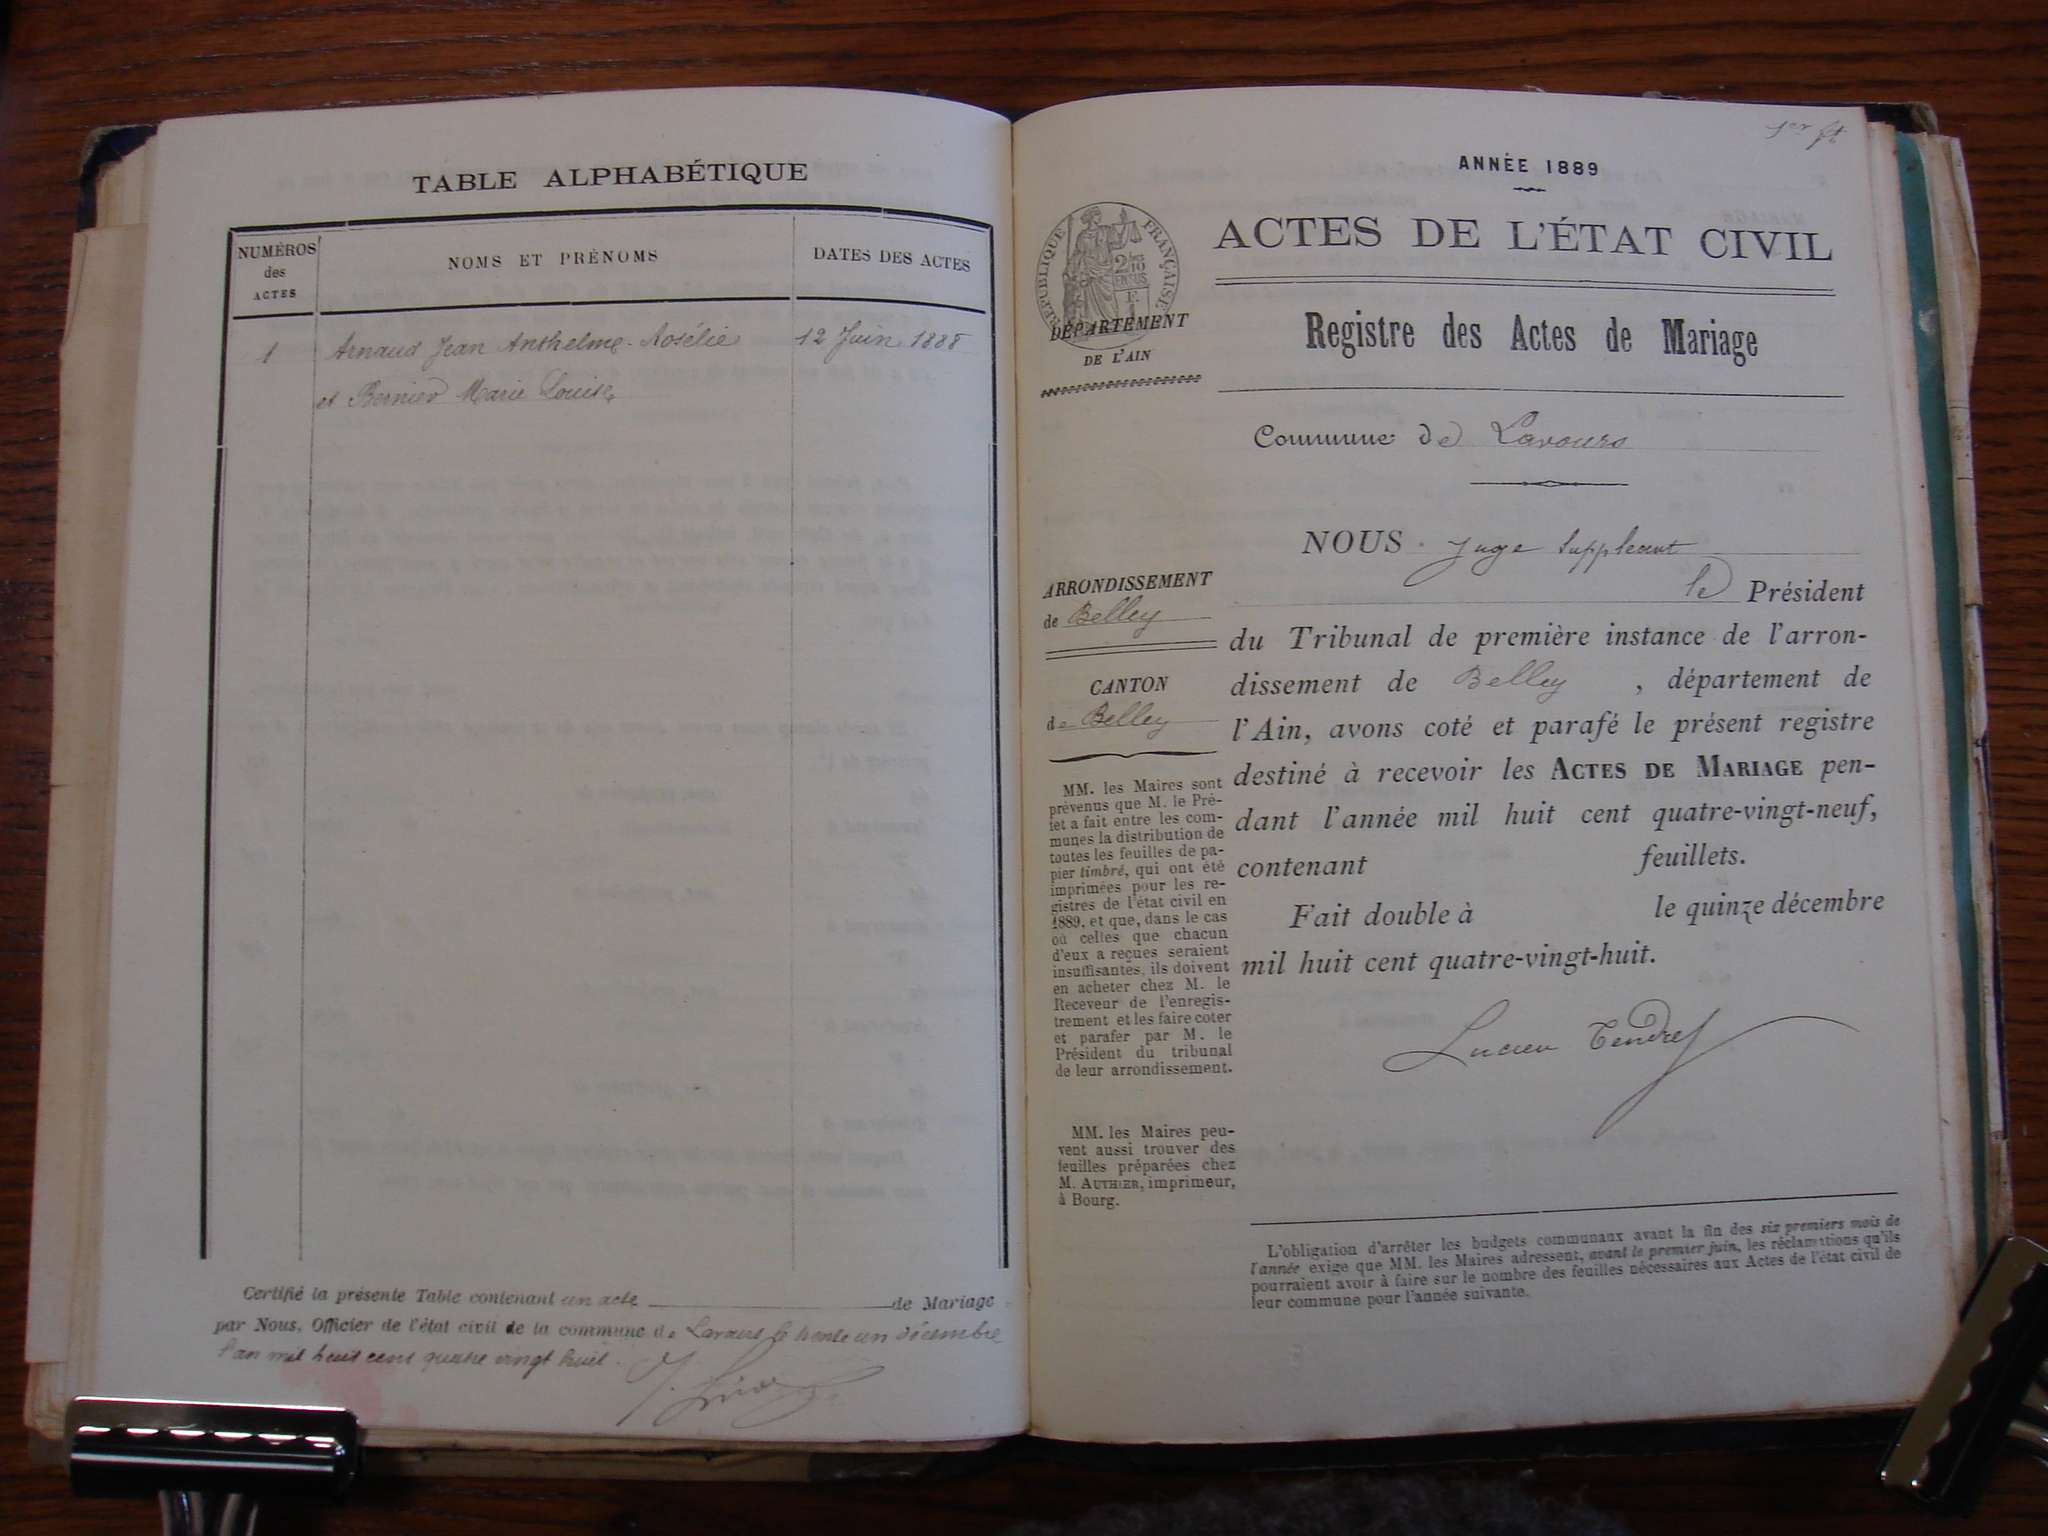 TABLE ALPHABÉTIQUE
NUMÉROS des ACTES
NOMS ET PRÉNOMS
DATES DES ACTES
1 Arnaud Jean Anthelme Rosélie 12 Juin 1888
et Bernier Marie Louise
Certifié la présente Table contenant un acte de Mariage
par Nous, Officier de l'état civil de la commune de Lavours le trente un décembre
l'an mil huit cent quatre vingt huit.
1er ft
ANNÉE 1889
ACTES DE L'ÉTAT CIVIL
RÉPUBLIQUE FRANÇAISE
2/10 EN SUS
F.
DÉPARTEMENT
DE L'AIN
Registre des Actes de Mariage
Commune de Lavours
ARRONDISSEMENT
de Belley
CANTON
de Belley
MM. les Maires sont
prévenus que M. le Pré-
fet a fait entre les com-
munes la distribution de
toutes les feuilles de pa-
pier timbré, qui ont été
imprimées pour les re-
gistres de l'état civil en
1889, et que, dans le cas
où celles que chacun
d'eux a reçues seraient
insuffisantes, ils doivent
en acheter chez M. le
Receveur de l'enregis-
trement et les faire coter
et parafer par M. le
Président du tribunal
de leur arrondissement.
MM. les Maires peu-
vent aussi trouver des
feuilles préparées chez
M. AUTHIER, imprimeur,
à Bourg.
NOUS Juge Suppleant
le Président
du Tribunal de première instance de l'arron-
dissement de Belley , département de
l'Ain, avons coté et parafé le présent registre
destiné à recevoir les ACTES DE MARIAGE pen-
dant l'année mil huit cent quatre-vingt-neuf,
contenant feuillets.
Fait double à le quinze décembre
mil huit cent quatre-vingt-huit.
Lucien Tendret
L'obligation d'arrêter les budgets communaux avant la fin des six premiers mois de
l'année exige que MM. les Maires adressent, avant le premier juin, les réclamations qu'ils
pourraient avoir à faire sur le nombre des feuilles nécessaires aux Actes de l'état civil de
leur commune pour l'année suivante.